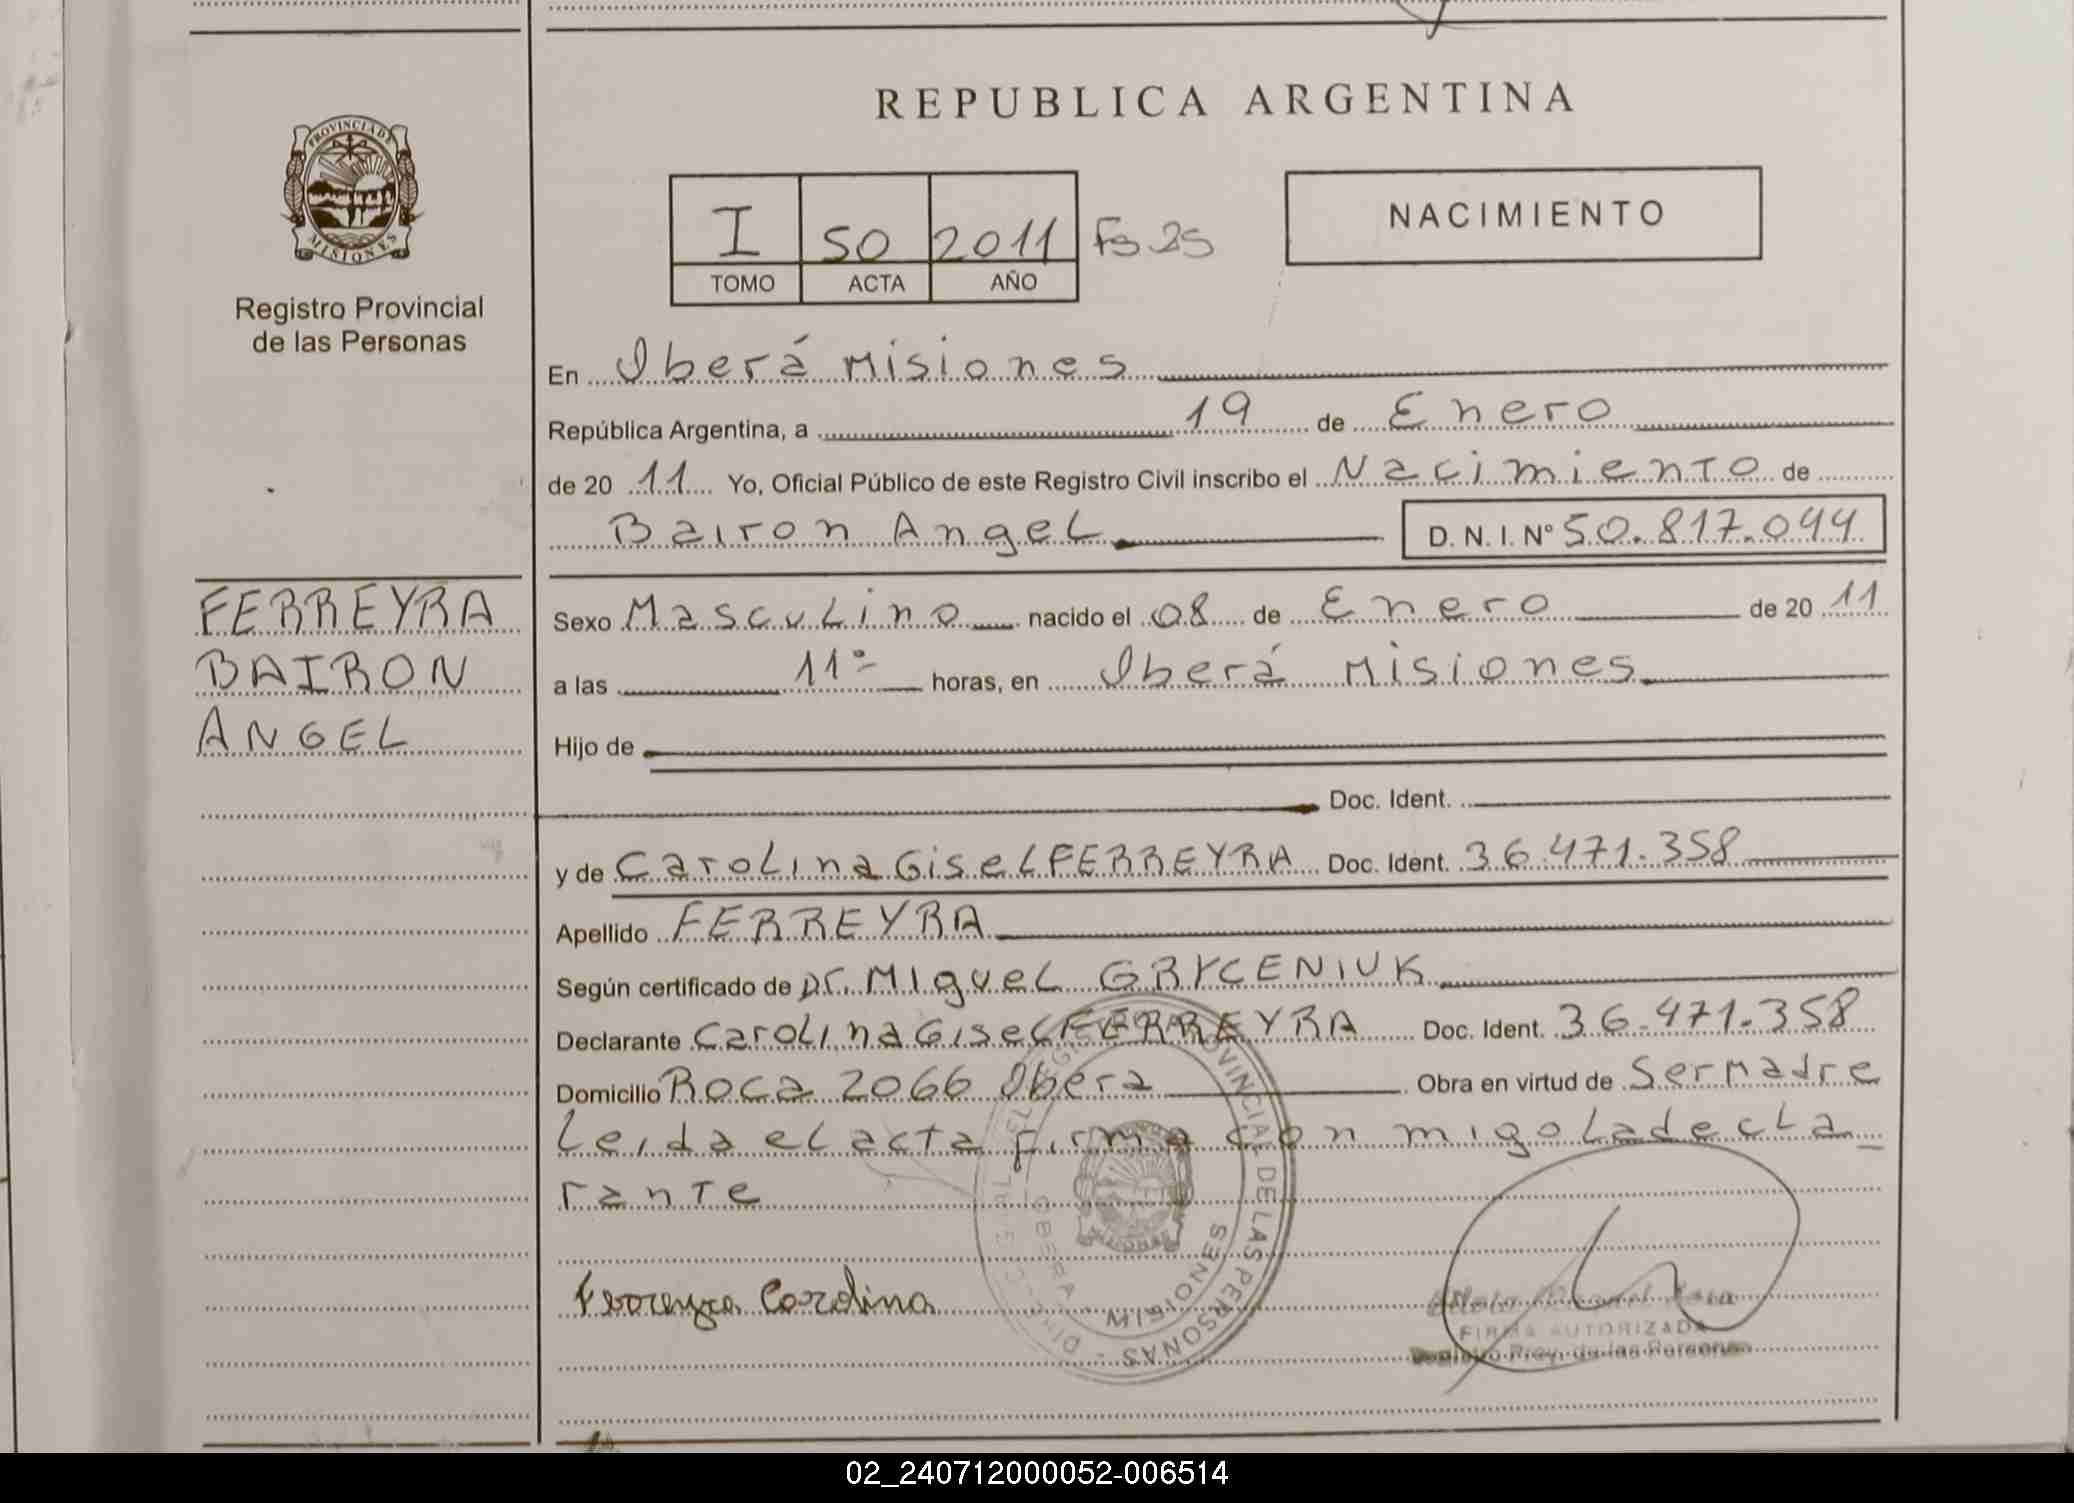 REPUBLICA ARGENTINA
PROVINCIA DE
MISIONES
Registro Provincial
de las Personas
I 50 2011 Fs 25
TOMO ACTA AÑO
NACIMIENTO
En Oberá Misiones
República Argentina, a 19 de Enero
de 20 11 Yo, Oficial Público de este Registro Civil inscribo el Nacimiento de
Bairon Angel D. N. I. Nº 50.817.044
FERREYRA
BAIRON
ANGEL
Sexo Masculino nacido el 08 de Enero de 20 11
a las 11º horas, en Oberá Misiones
Hijo de
Doc. Ident.
y de Carolina Gisel FERREYRA Doc. Ident. 36.471.358
Apellido FERREYRA
Según certificado de Dr. Miguel GRYCENIUK
Declarante Carolina Gisel FERREYRA Doc. Ident. 36.471.358
Domicilio Roca 2066 Obera Obra en virtud de Ser madre
Leida el acta firma con migo la decla_
rante
Ferreyra Carolina
PROVINCIAL DE LAS PERSONAS
OBERA MISIONES
FIRMA AUTORIZADA
Registro Prov. de las Personas
02_240712000052-006514